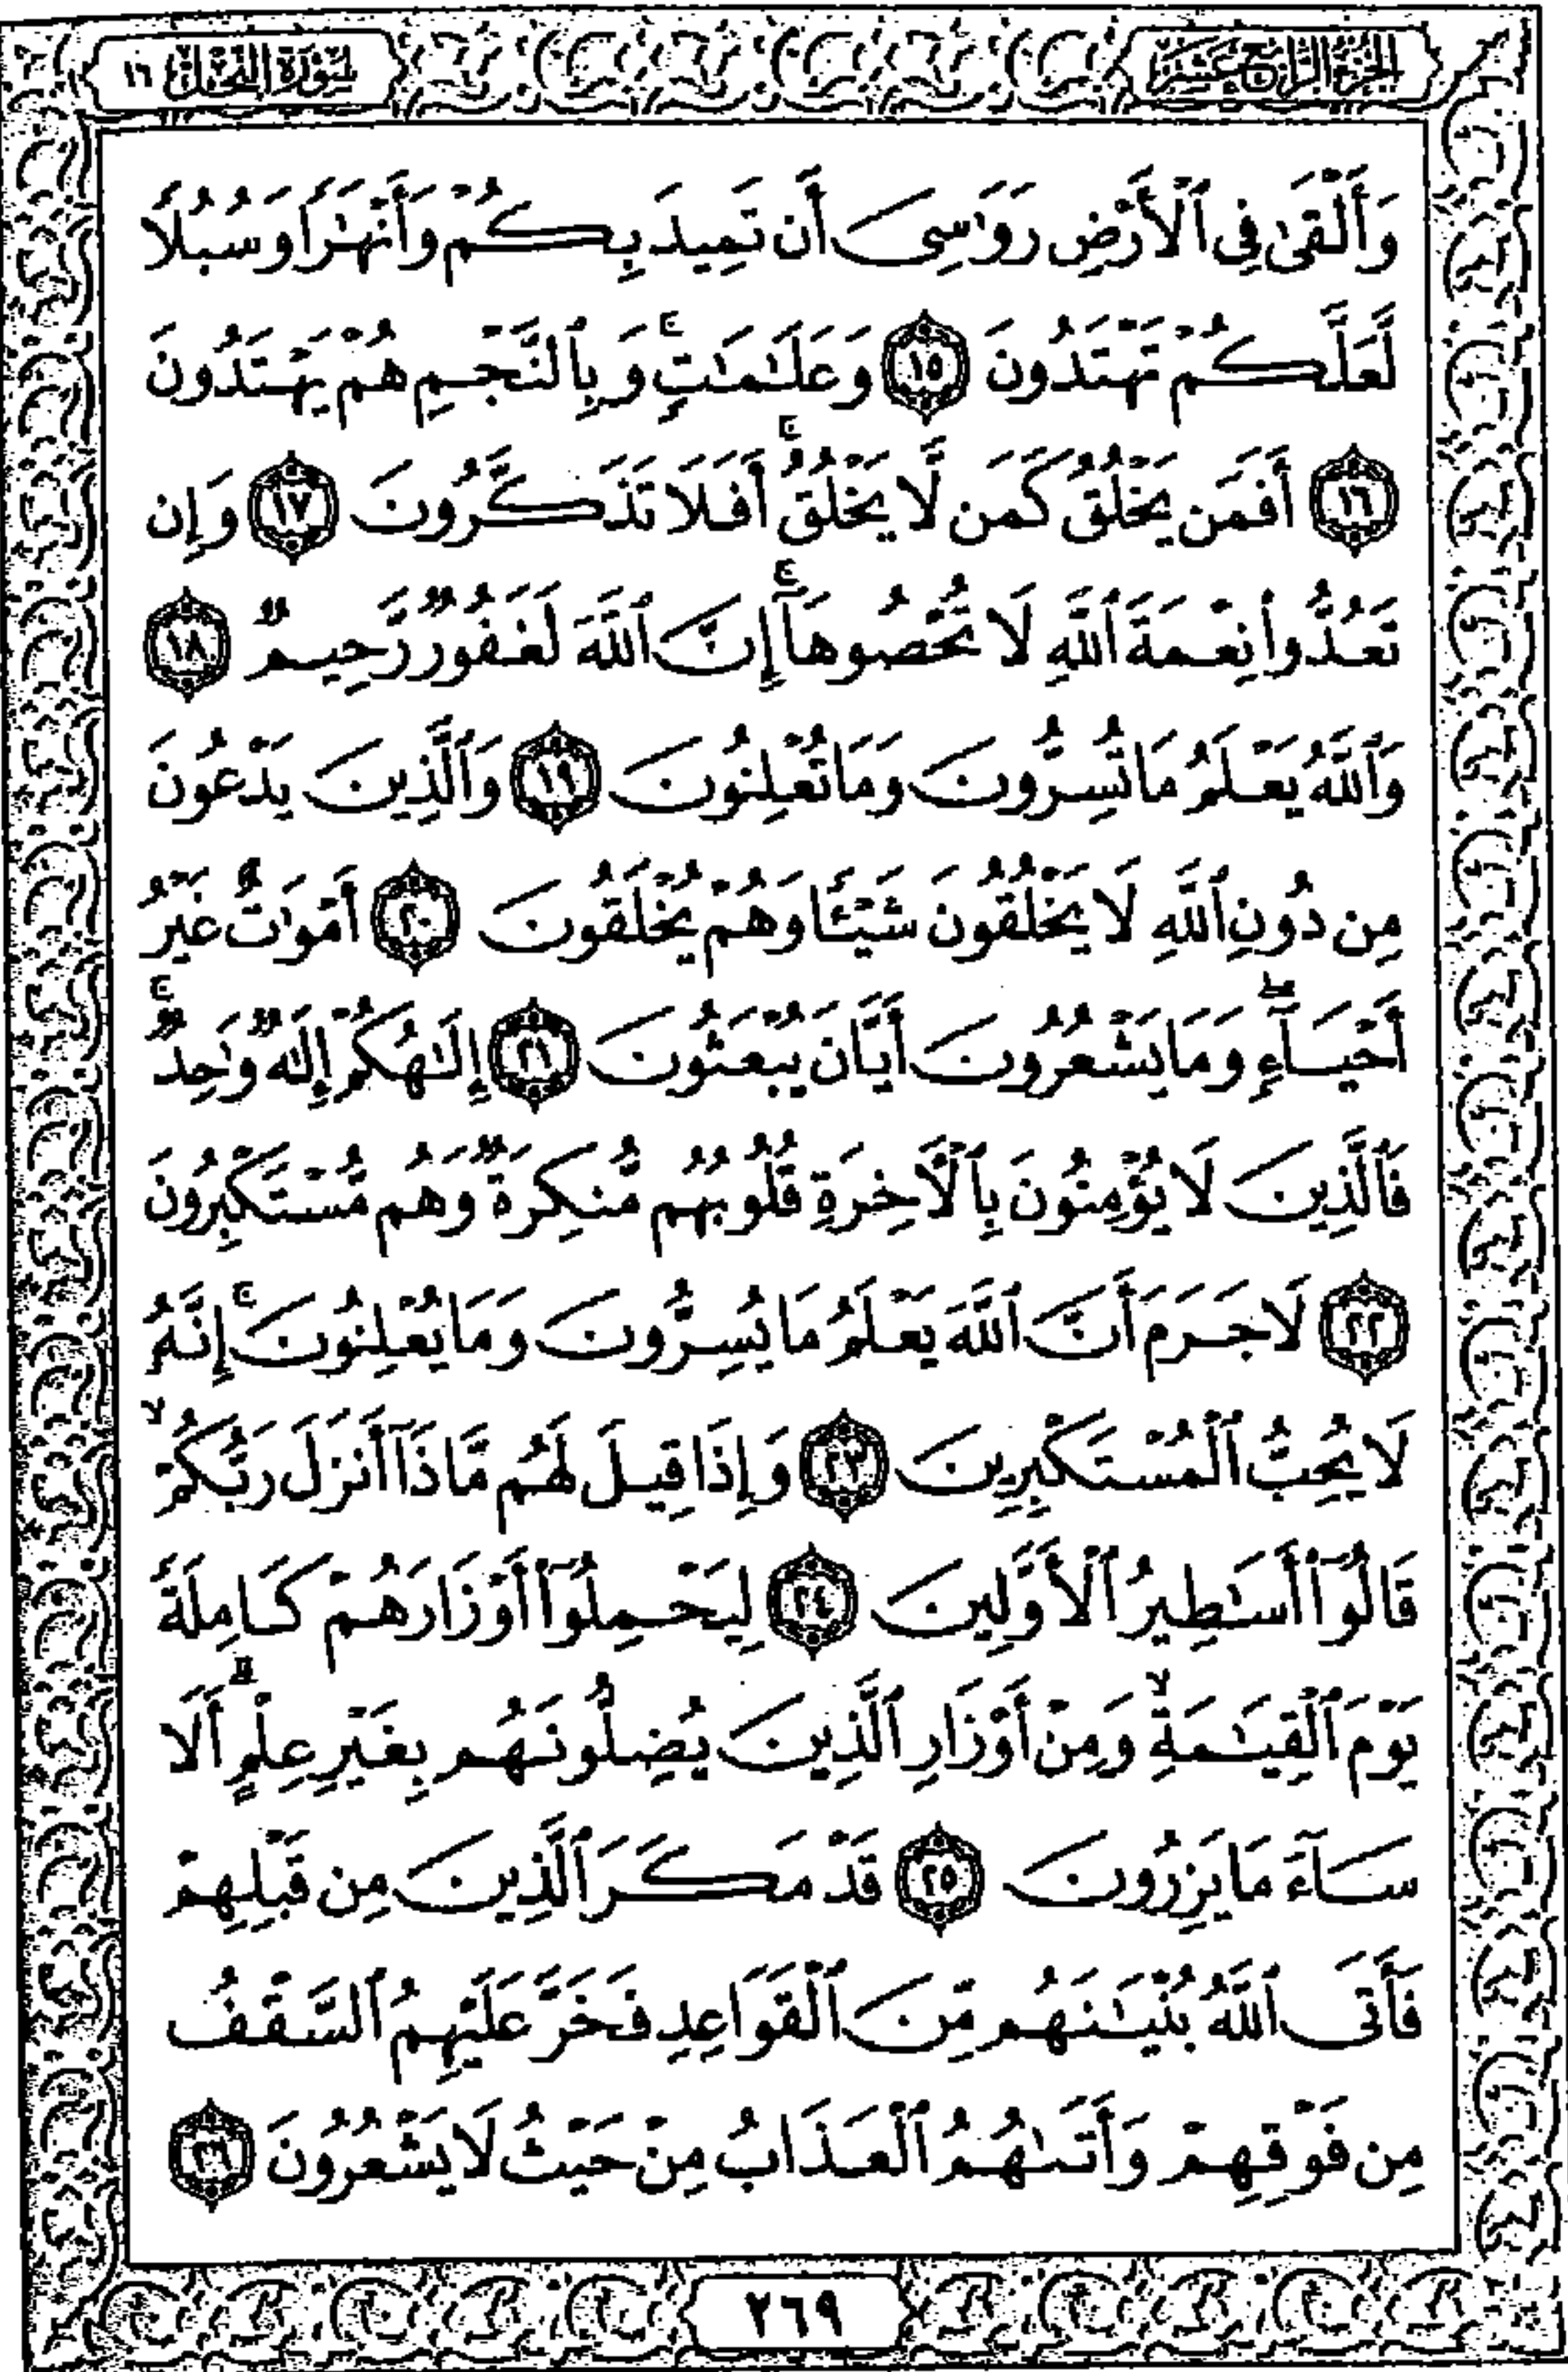 الجزء الرابع عشر
سورة النحل ١٦
وَأَلْقَىٰ فِي ٱلْأَرْضِ رَوَٰسِيَ أَن تَمِيدَ بِكُمْ وَأَنْهَٰرًا وَسُبُلًا
لَّعَلَّكُمْ تَهْتَدُونَ ١٥ وَعَلَٰمَٰتٍۚ وَبِٱلنَّجْمِ هُمْ يَهْتَدُونَ
١٦ أَفَمَن يَخْلُقُ كَمَن لَّا يَخْلُقُۚ أَفَلَا تَذَكَّرُونَ ١٧ وَإِن
تَعُدُّوا۟ نِعْمَةَ ٱللَّهِ لَا تُحْصُوهَآۚ إِنَّ ٱللَّهَ لَغَفُورٌ رَّحِيمٌ ١٨
وَٱللَّهُ يَعْلَمُ مَا تُسِرُّونَ وَمَا تُعْلِنُونَ ١٩ وَٱلَّذِينَ يَدْعُونَ
مِن دُونِ ٱللَّهِ لَا يَخْلُقُونَ شَيْـًٔا وَهُمْ يُخْلَقُونَ ٢٠ أَمْوَٰتٌ غَيْرُ
أَحْيَآءٍۖ وَمَا يَشْعُرُونَ أَيَّانَ يُبْعَثُونَ ٢١ إِلَٰهُكُمْ إِلَٰهٌ وَٰحِدٌۚ
فَٱلَّذِينَ لَا يُؤْمِنُونَ بِٱلْءَاخِرَةِ قُلُوبُهُم مُّنكِرَةٌ وَهُم مُّسْتَكْبِرُونَ
٢٢ لَا جَرَمَ أَنَّ ٱللَّهَ يَعْلَمُ مَا يُسِرُّونَ وَمَا يُعْلِنُونَۚ إِنَّهُۥ
لَا يُحِبُّ ٱلْمُسْتَكْبِرِينَ ٢٣ وَإِذَا قِيلَ لَهُم مَّاذَآ أَنزَلَ رَبُّكُمْۙ
قَالُوٓا۟ أَسَٰطِيرُ ٱلْأَوَّلِينَ ٢٤ لِيَحْمِلُوٓا۟ أَوْزَارَهُمْ كَامِلَةً
يَوْمَ ٱلْقِيَٰمَةِۙ وَمِنْ أَوْزَارِ ٱلَّذِينَ يُضِلُّونَهُم بِغَيْرِ عِلْمٍۗ أَلَا
سَآءَ مَا يَزِرُونَ ٢٥ قَدْ مَكَرَ ٱلَّذِينَ مِن قَبْلِهِمْ
فَأَتَى ٱللَّهُ بُنْيَٰنَهُم مِّنَ ٱلْقَوَاعِدِ فَخَرَّ عَلَيْهِمُ ٱلسَّقْفُ
مِن فَوْقِهِمْ وَأَتَىٰهُمُ ٱلْعَذَابُ مِنْ حَيْثُ لَا يَشْعُرُونَ ٢٦
٢٦٩